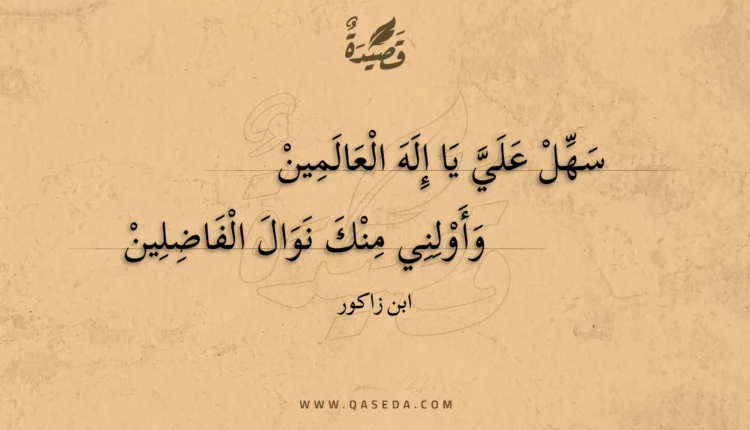 قَصِيْدَةٌ
سَهِّلْ عَلَيَّ يَا إِلَهَ الْعَالَمِينْ
وَأَوْلِنِي مِنْكَ نَوَالَ الْفَاضِلِينْ
ابن زاكور
WWW.QASEDA.COM